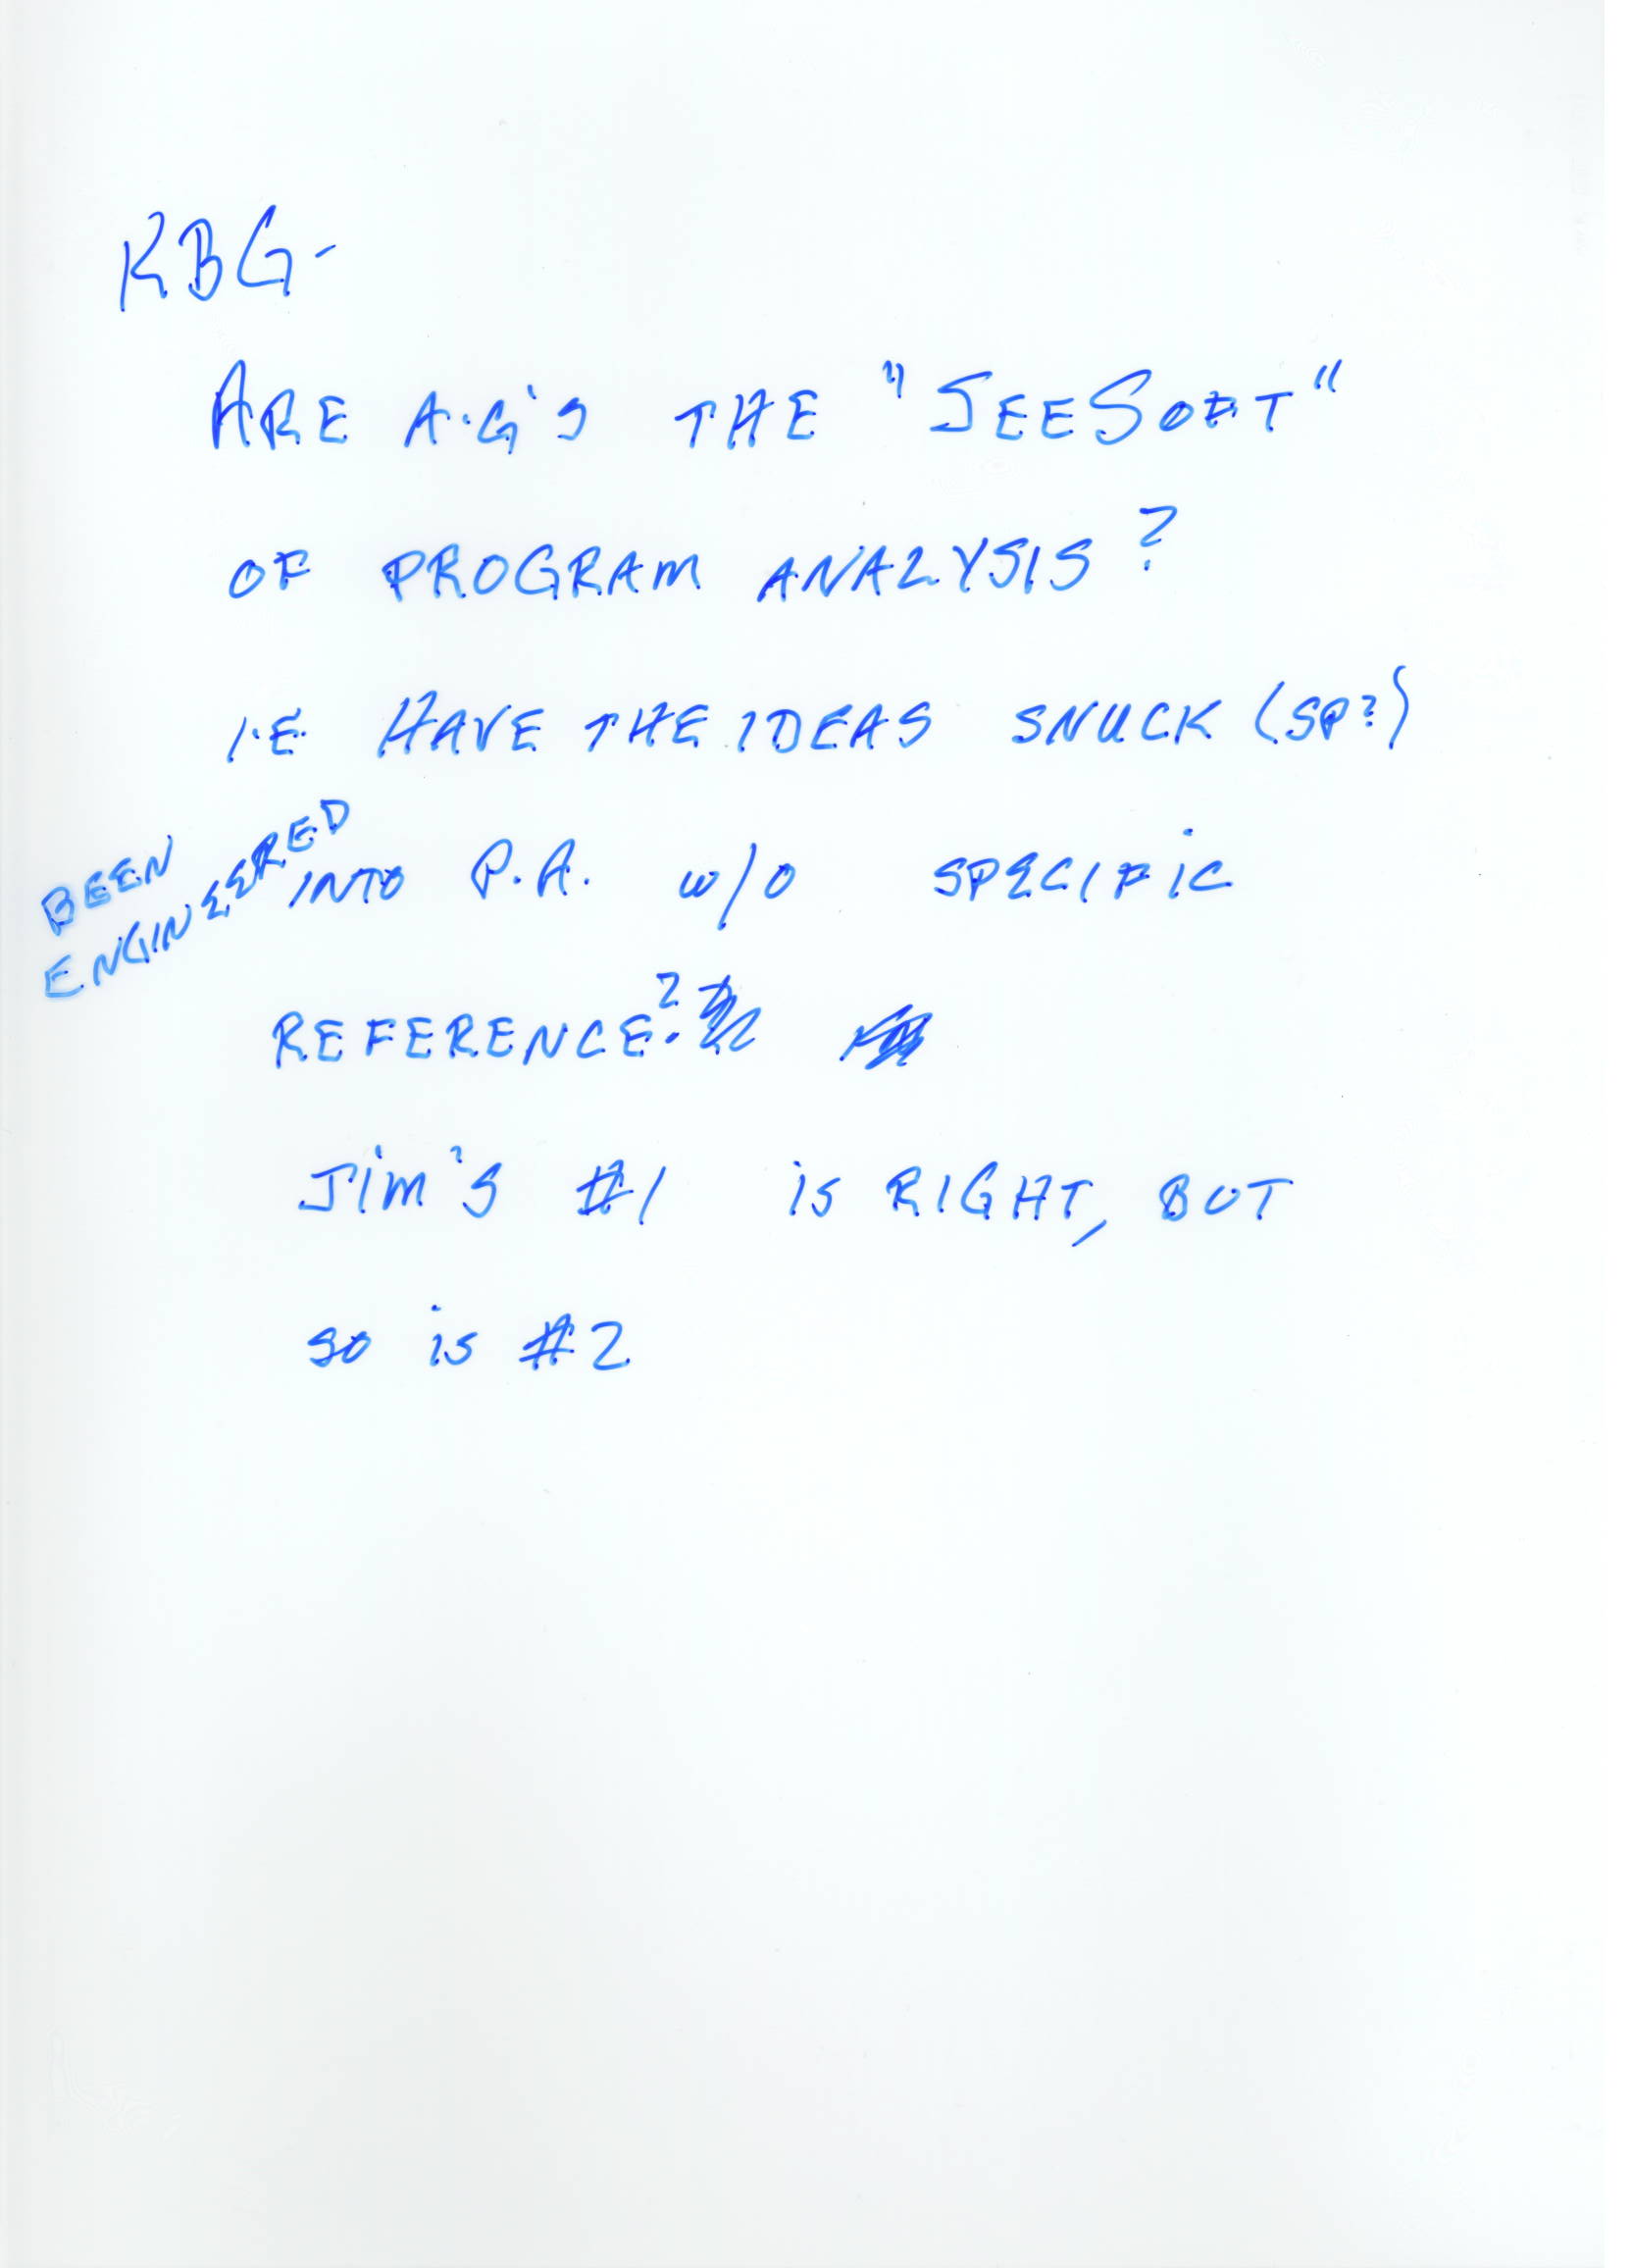 KBG-
ARE A.G'S THE "SEESOFT"
OF PROGRAM ANALYSIS?
I.E. HAVE THE IDEAS SNUCK (SP?)
BEEN
ENGINEERED
INTO P.A. w/o SPECIFIC
REFERENCE?
JIM'S #1 IS RIGHT, BUT
SO IS #2